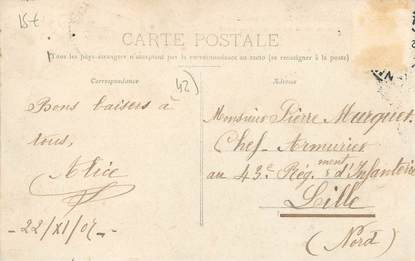 15t
CARTE POSTALE
Tous les pays étrangers n'acceptent pas la correspondance au recto (se renseigner à la poste)
Correspondance
42)
Adresse
Bons baisers à
tous,
Alice
22/XI/07
Monsieur Pierre Murquet
Chef-Armurier
au 43e Rég.ment d'Infanterie
Lille
(Nord)